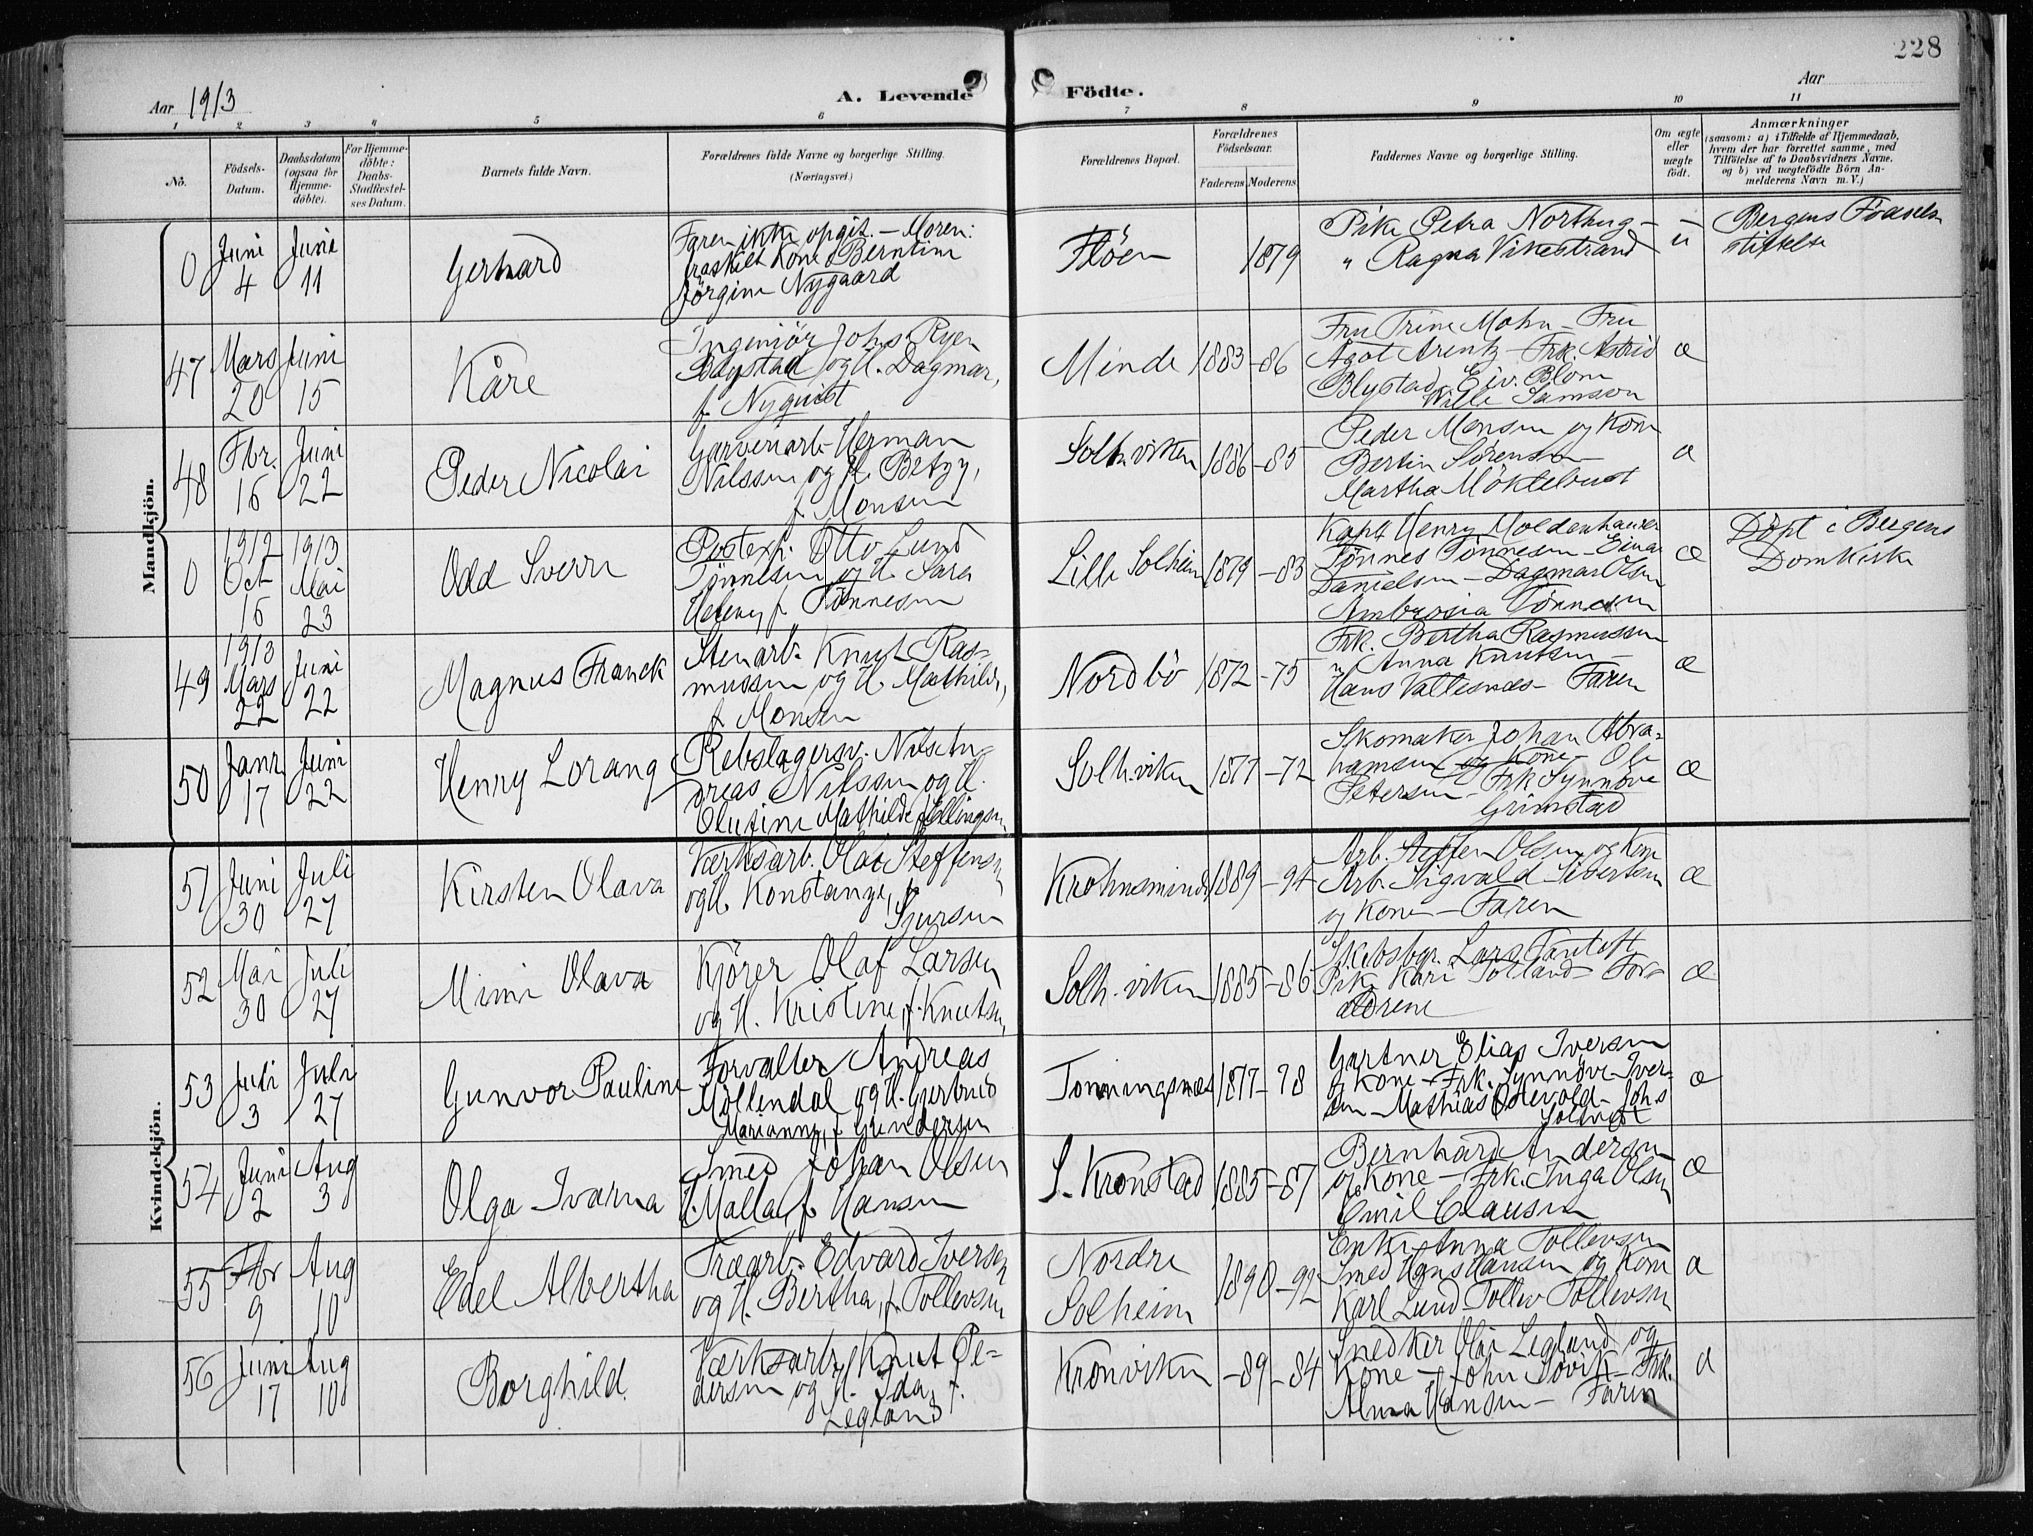 228
Aar 1913
A. Levende
Födte.
Aar
1 2 3 4 5 6 7 8 9 10 11
No.
Födsels-
Datum.
Daabsdatum
(ogsaa for
Hjemme-
döbte).
For Hjemme-
döbte:
Daabs-
Stadfæstel-
ses Datum.
Barnets fulde Navn.
Forældrenes fulde Navne og borgerlige Stilling.
(Næringsvei.)
Forældrenes Bopæl.
Forældrenes
Födselsaar.
Faderens Moderens
Faddernes Navne og borgerlige Stilling.
Om ægte
eller
uægte
födt.
Anmærkninger
(saasom: a) i Tilfælde af Hjemmedaab,
hvem der har forrettet samme, med
Tilföielse af to Daabsvidners Navne.
og b) ved uægtefödte Börn An-
melderens Navn m. V.)
Mandkjön.
0
Juni
4
Juni
11
Gerhard
Faren ikke opgit. – Moren:
fraskilt Kone Berntine
Jörgine Nygaard
Flöen
1879
Pike Petra Northug –
" Ragna Vikestrand
u
Bergens Födsels
stiftelse
47
Mars
20
Juni
15
Kåre
Ingeniör Johs. Ryen
Blystad og H. Dagmar,
f. Nyquist
Minde
1883 –86
Fru Trine Mohn – Fru
Agot Arentz – Frk. Astrid
Blystad, Eiv. Blom
Wille Samson
æ
48
Fbr.
16
Juni
22
Peder Nicolai
Garveriarb. Herman
Nilssen og H. Betzy,
f. Monsen
Solh.viken
1886 –85
Peder Monsen og Kone
Bertin Sörensen
Martha Möktelvedt
æ
0
1912
Oct
16
1913
Mai
23
Odd Sverre
Postexp. Otto Lund
Tönnesen og H. Sara
Heleny f. Tönnesen
Lille Solheim
1879 –83
Kapt. Henry Moldenhauer
Tönnes Tönnesen – Einar
Danielsen – Dagmar Olsen
Ambrosia Tönnesen
æ
Döpt i Bergens
Domkirke
49
1913
Mars
22
Juni
22
Magnus Franck
Stenarb. Knut Ras-
mussen og H. Mathilde,
f. Monsen
Nordbö
1872 –75
Frk. Bertha Rasmussen
" Anna Knutsen –
Hans Vallesnes – Faren
æ
50
Janr.
17
Juni
22
Henry Lorang
Rebslagersv. Nils An-
dreas Nilssen og H.
Olufine Mathilde f. Ellingsen
Solh.viken
1877 –72
Skomaker Johan Abra-
hamsen og Kone – Ole
Petersen – Frk Synnöve
Grimstad
æ
Kvindekjön.
51
Juni
30
Juli
27
Kirsten Olava
Værksarb. Olai Steffensen
og H. Konstanze, f.
Sjursen
Krohnsminde
1889 –94
Arb. Steffen Olsen og Kone
Arb. Sigvald Sivertsen
og Kone – Faren
æ
52
Mai
30
Juli
27
Mimi Olava
Kjörer Olaf Larsen
og H. Kristine, f. Knutsen
Solh.viken
1885 –86
Skibsbyr. Lars Fantoft
Pike Kari Totland – For-
ældrene
æ
53
Juli
3
Juli
27
Gunvor Pauline
Forvalter Andreas
Möllendal og H. Gjertrud
Marianne, f. Gundersen
Tonningsnæs
1877 –78
Gartner Elias Iversen
og Kone – Frk. Synnöve Iver-
sen – Mathias Östevold – Johs
Soltvedt
æ
54
Juni
2
Aug
3
Olga Ivarna
Smed Johan Olsen
H. Malla, f. Hansen
S. Kronstad
1885 –87
Bernhard Andersen
og Kone – Frk. Inga Olsen
Emil Clausen
æ
55
Fbr
9
Aug
10
Edel Albertha
Træarb. Edvard Iversen
og H. Bertha, f. Tollevsen
Nordre
Solheim
1890 –92
Enke Anna Tollevsen
Smed Hans Hansen og Kone
Karl Lund – Tollev Tollevsen
æ
56
Juni
17
Aug
10
Borghild.
Værksarb. Knut Pe-
dersen og H. Ida, f.
Legland
Kronviken
–89 –84
Snedker Olai Legland og
Kone – John Sövik – Frk.
Anna Hansen – Faren
æ